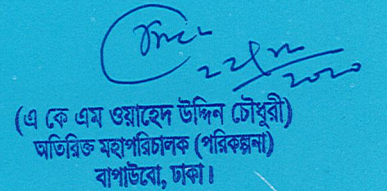 (এ কে এম ওয়াহেদ উদ্দিন চৌধুরী)
অতিরিক্ত মহাপরিচালক (পরিকল্পনা)
বাপাউবো, ঢাকা।